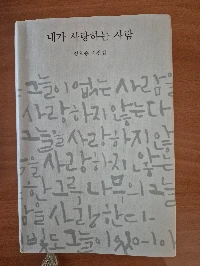 내가 사랑하는 사람
정호승 시선집
그늘이 없는 사람을
사랑하지 않는다
그늘을 사랑하지 않
을 사랑하지 않는
한 그루 나무의 그늘
을 사랑한다
빛도 그늘이 있어야